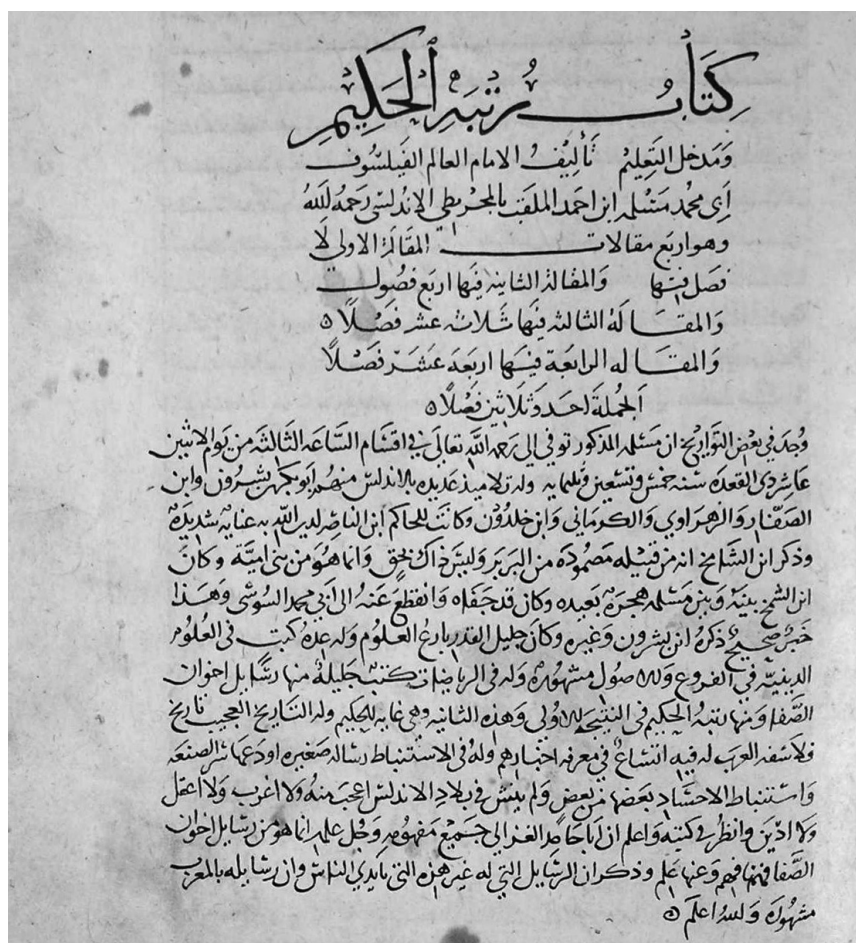 كتاب رتبة الحكيم
ومدخل التعليم تأليف الامام العالم الفيلسوف
ابى محمد مسلمه ابن احمد الملقب بالمجريطي الاندلسي رحمه الله
وهو اربع مقالات المقالة الاولى لا
فصل فيها والمقالة الثانيه فيها اربع فصول
والمقاله الثالثه فيها ثلاثه عشر فصلا
والمقاله الرابعة فيها اربعة عشر فصلا
الجملة احد وثلاثين فصلا
وجد في بعض التواريخ ان مسلمه المذكور توفي الى رحمه الله تعالى في اقسام الساعه الثالثه من يوم الاثنين
عاشر ذى القعده سنه خمس وتسعين وثلثمايه وله تلاميذ عديده بالاندلس منهم ابو بكر بن بشرون وابن
الصفار والزهراوي والكرماني وابن خلدون وكانت للحاكم ابن الناصر لدين الله به عنايه شديده
وذكر ابن الشامخ انه من قبيله مصموده من البربر وليس ذاك بحق وانما هو من بنى امية وكان
ابن الشمخ بينه وبين مسلمه هجره بعيده وكان قد جفاه وانقطع عنه الى أبي محمد السوسى وهذا
خبر صحيح ذكره ابن بشرون وغيره وكان جليل القدر بارع العلوم وله عدة كتب في العلوم
الدينيه في الفروع والاصول مشهوره وله في الرياضات كتب جليله منها رسايل اخوان
الصفا ومنها رتبه الحكيم في النتيجه الاولى وهذه الثانيه وهي غايه الحكيم وله التاريخ العجيب تاريخ
فلاسفه العرب له فيه اتساع في معرفه اخبارهم وله في الاستنباط رساله صغيره اودعها سر الصنعه
واستنباط الاجساد بعضها من بعض ولم ير في بلاد الاندلس اعجب منه ولا اغرب ولا اعقل
ولا ادين وانظر في كتبه واعلم ان ابا حامد الغزالي جميع مفهومه وجل علمه انما هو من رسايل اخوان
الصفا فمنها فهم وعنها علم وذكر ان الرسايل التي له غير هذه التي بايدي الناس وان رسايله بالمغرب
مشهوره والله اعلم